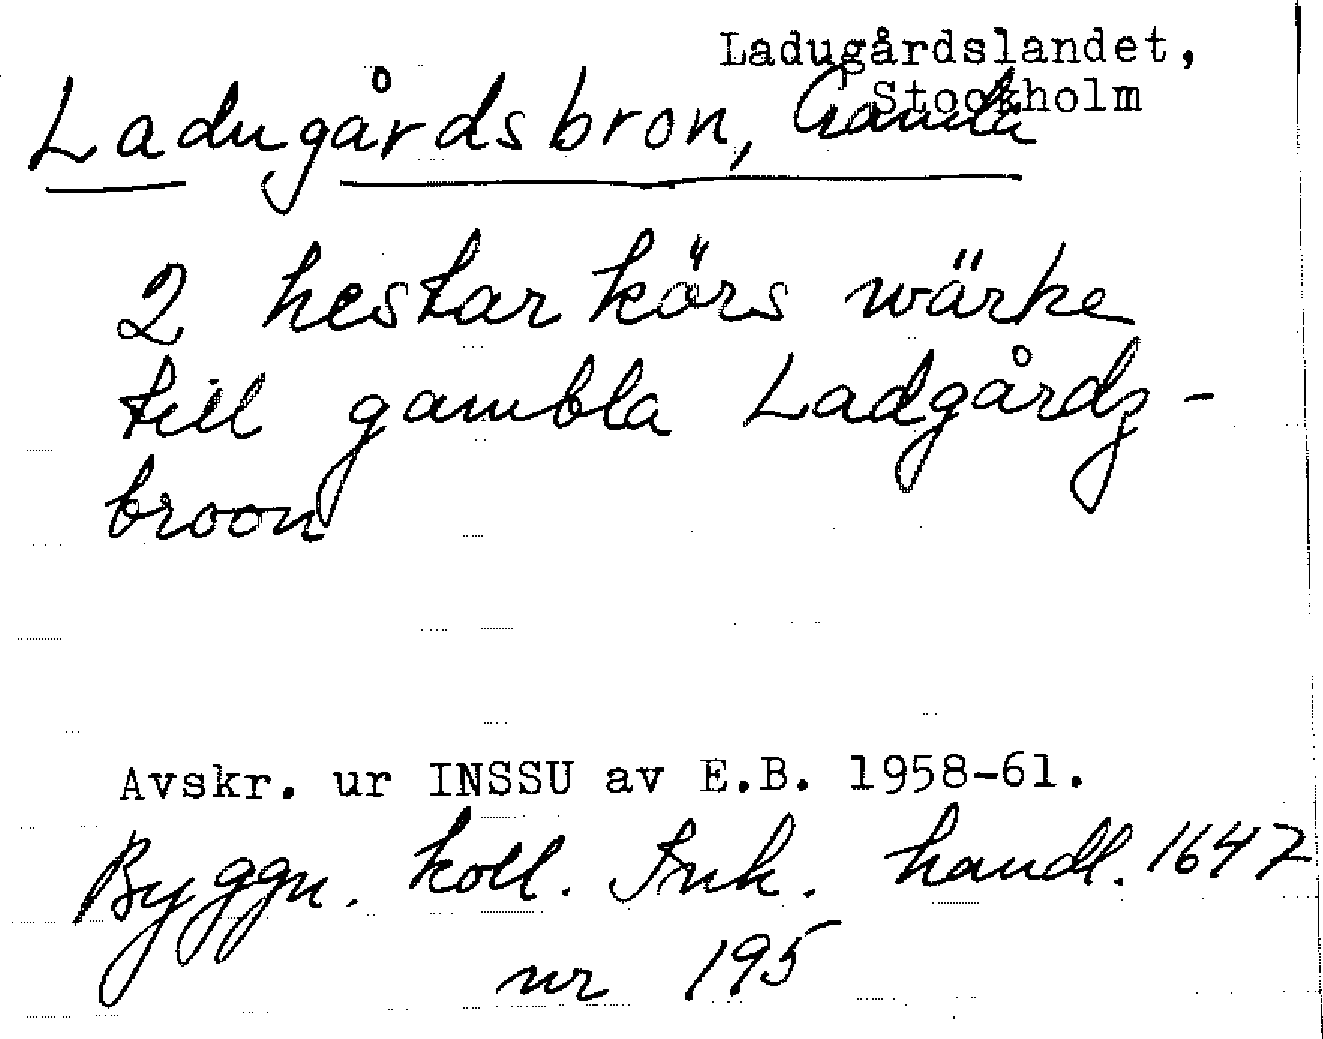 Ladugårdslandet,
Stockholm
Ladugårdsbron, Gamla
2 hestar körs wärke
till gambla Ladgårdz-
broon
Avskr. ur INSSU av E.B. 1958-61.
Byggn. koll. Ink. handl. 1647
nr 195